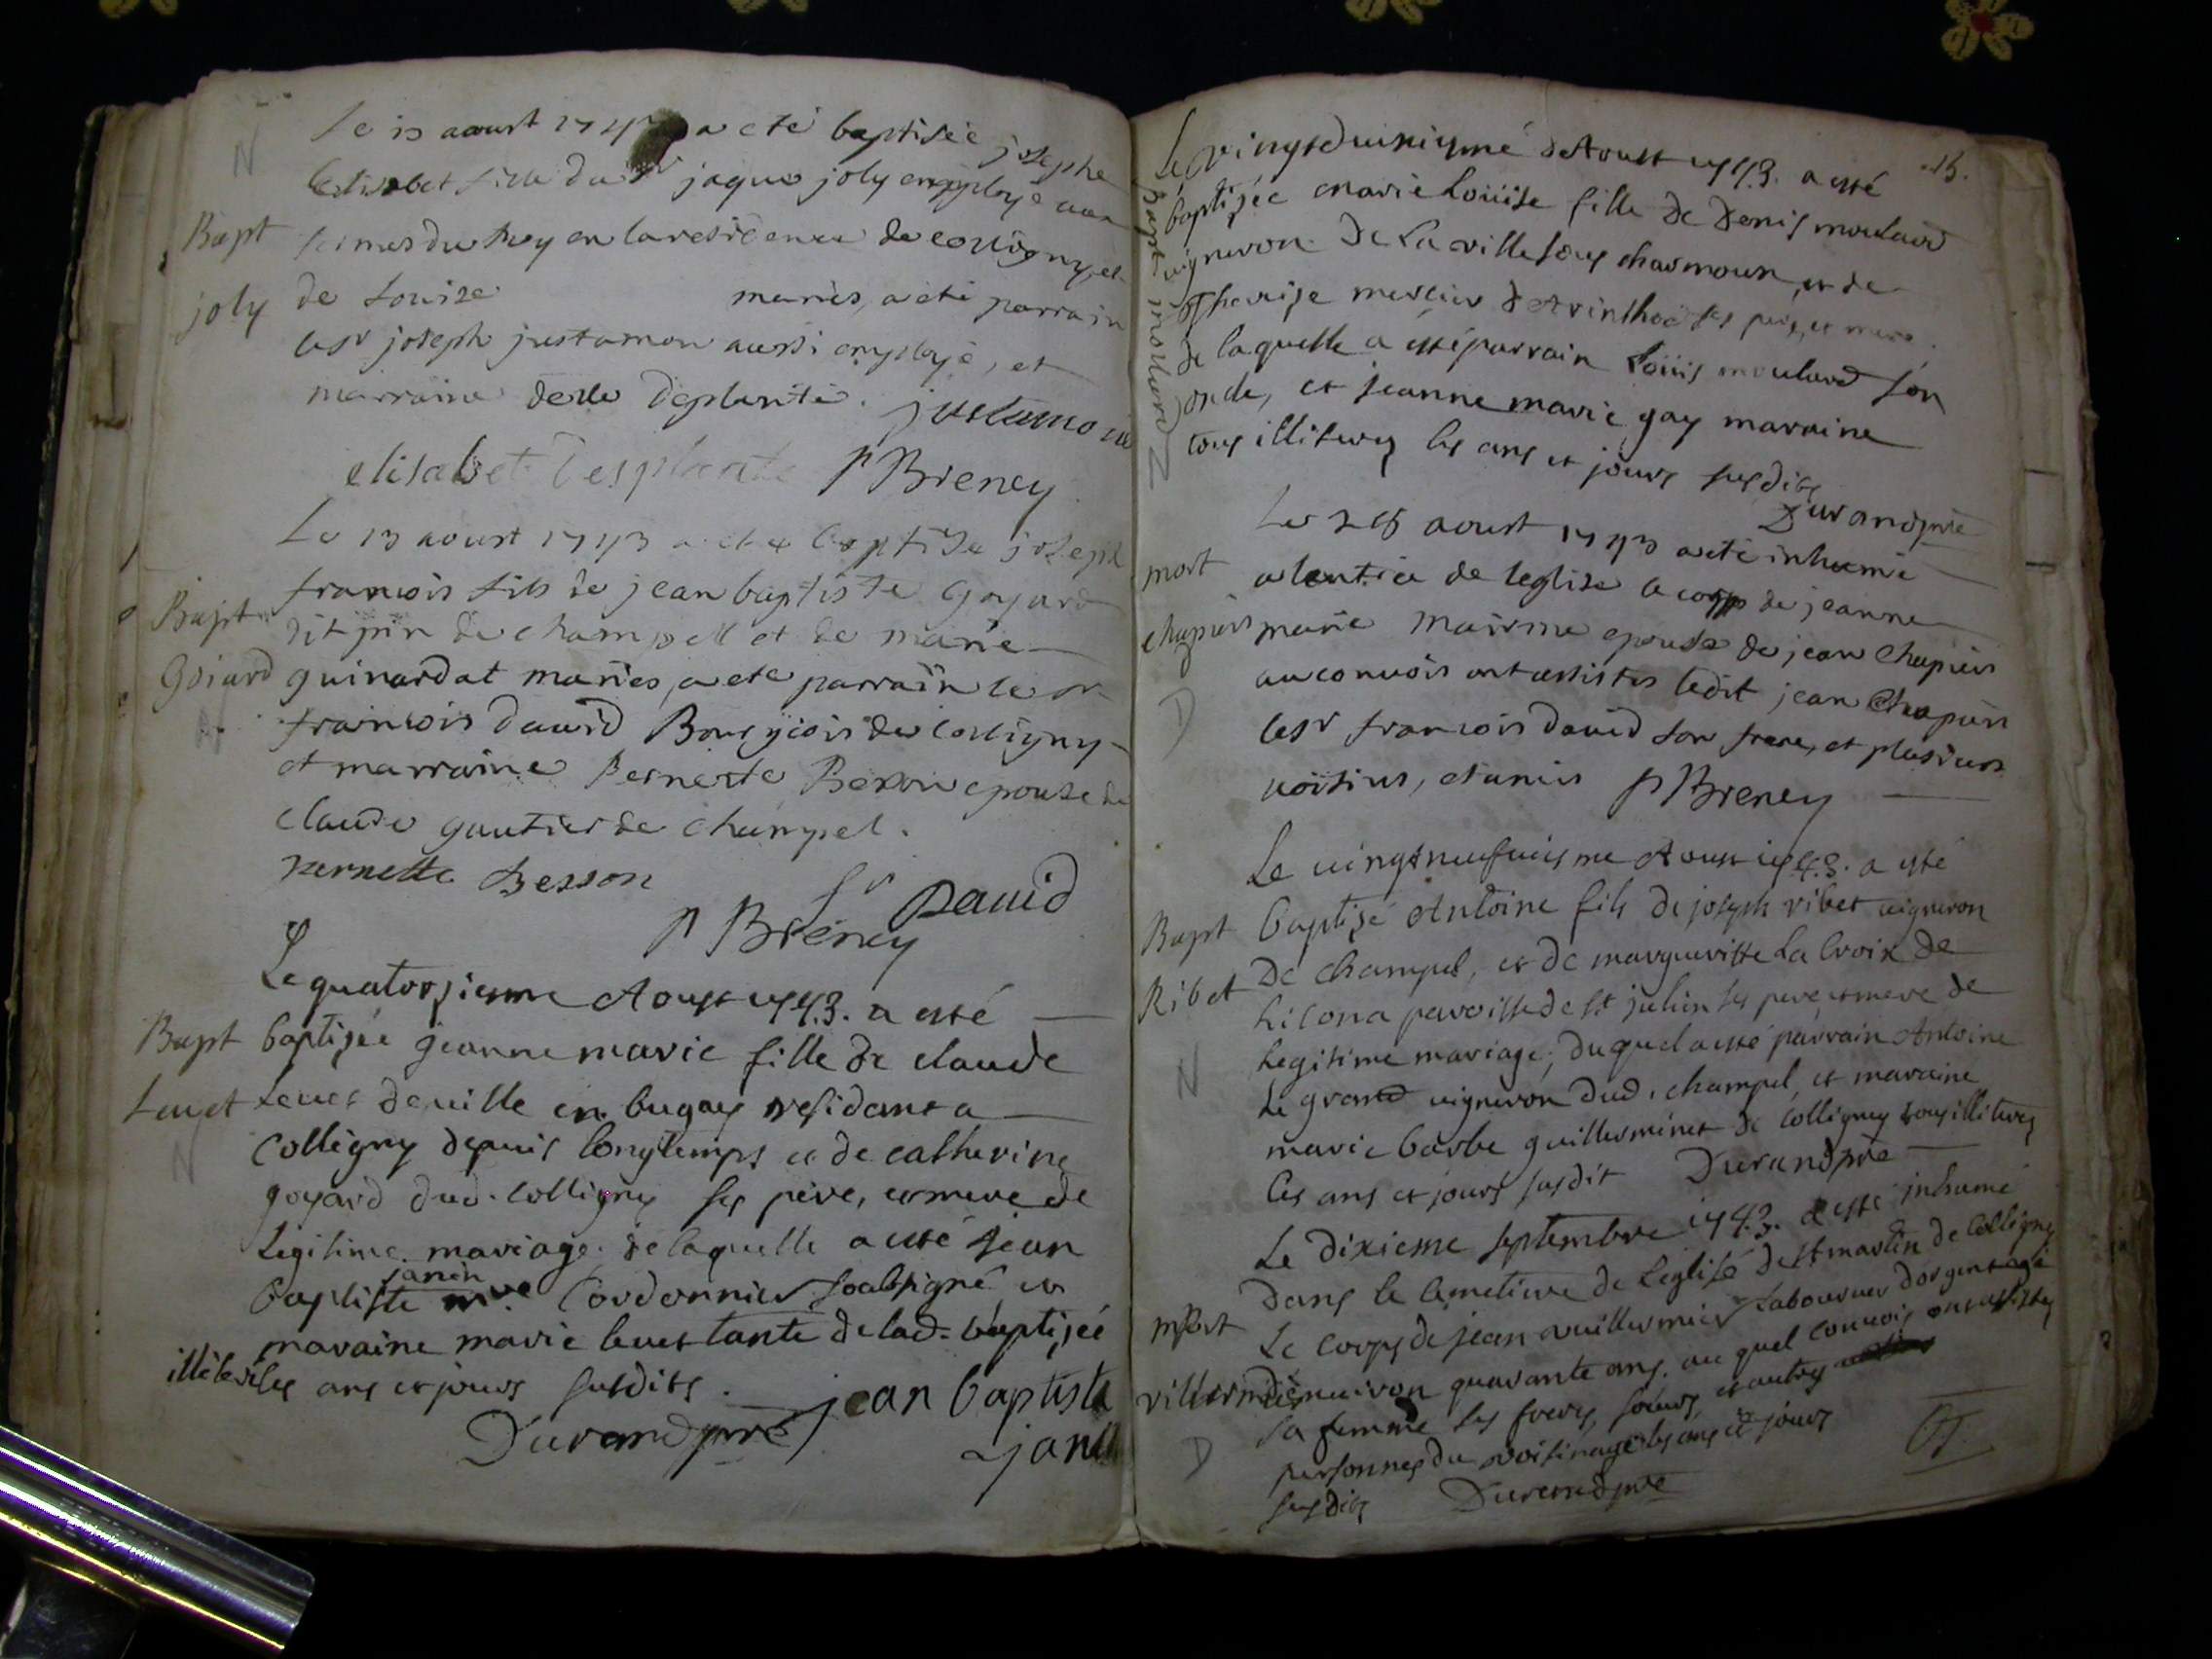 N
Le 13 aoust 174 a été baptisée josephe
Elisabet fille du Sr jaque joly employé aux
Bapt
fermes du Roy en la residence de colligny, et
joly
de Louise mariés, a été parrain
le sr joseph justamon aussi employé, et
marraine delle Deplante. justamon
elisabet Desplante P Breney
Le 13 aoust 1743 a eté baptisé joseph
francois fils de jean baptiste Goyard
Bapt
dit pin de champell et de marie
Goiard
guinardat mariés, a eté parrain le sr
N
francois dauid Bourgeois de Colligny
et marraine Pernette Besson epouse de
claude gautier de champel.
pernette Besson
fr Dauid
P Breney
Le quatorsiesme Aoust 1743. a esté
Bapt
baptisée jeanne marie fille de claude
Leuet
Leuet deuille en bugey residant a
N
Colligny depuis longtemps et de catherine
goyard dud. Colligny ses pere, et mere de
Legitime mariage. de laquelle a esté jean
janin
baptiste Cordonnier soubsigné et
maraine marie leuet tante de lad. baptisée
illiterés les ans et jours susdits.
jean baptiste
Durand pre
janin
15.
Le vingt duixiyme d'Aoust 1743. a esté
baptisée marie Loüise fille de Denis moulard
vigneron de La ville sous charmoux, et de
Therese mercier d'Arinthod ses pere, et mere.
de laquelle a esté parrain Loüis moulard son
oncle, et jeanne marie gay maraine
tous illiterez les ans et jours susdits
Durand pre
Bapt moulard N
Le 28 aoust 1743 a eté inhumé
mort
a lentrée de leglise le corps de jeanne
chapuis
marie epouse de jean Chapuis
au conuois ont assistes ledit jean Chapuis
D
le sr francois dauid son frere, et plusieurs
uoisins, et amis P Breney
Le uingt neufuiesme Aoust 1743. a esté
Bapt
baptisé Antoine fils de joseph ribet uigneron
Ribet
De champel, et de margueritte La Croix de
Licona paroisse de st julien ses pere et mere de
N
Legitime mariage; duquel a esté parrain Antoine
Le grand uigneron dud. champel, et maraine
marie barbe guillerminet de Colligny tous illiterez
les ans et jours susdit Durand pre
Le dixieme septembre 1743. a esté inhumé
dans le cemetiere de Leglise de st martin de Colligny
mort
Le corps de jean vuillermier Laboureur dorgent agé
villermier
denuiron quarante ans. au quel conuois ont assistez
sa femme ses freres, soeurs, et autres
D
personnes du voisinage les ans et jours
susdits Durand pre